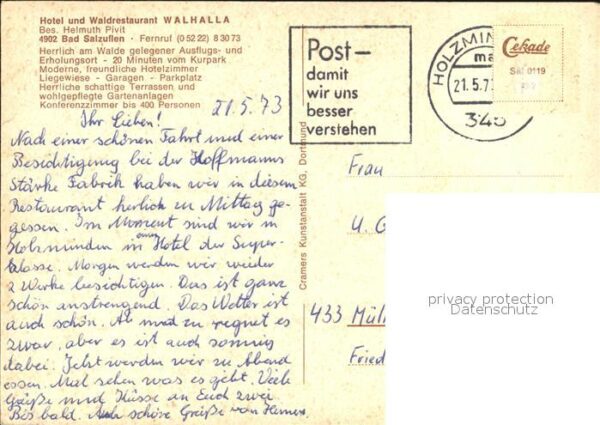 Hotel und Waldrestaurant WALHALLA
Bes. Helmuth Pivit
4902 Bad Salzuflen - Fernruf (0 52 22) 8 30 73
Herrlich am Walde gelegener Ausflugs- und
Erholungsort - 20 Minuten vom Kurpark
Moderne, freundliche Hotelzimmer
Liegewiese - Garagen - Parkplatz
Herrliche schattige Terrassen und
wohlgepflegte Gartenanlagen
Konferenzzimmer bis 400 Personen
21.5.73
Ihr Lieben!
Nach einer schönen Fahrt und einer
Besichtigung bei der Hoffmanns
Stärke Fabrik haben wir in diesem
Restaurant herlich zu Mittag ge-
gessen. Im Moment sind wir in
Holzminden in einem Hotel der Super-
klasse. Morgen werden wir wieder
2 Werke besichtigen. Das ist ganz
schön anstrengend. Das Wetter ist
auch schön. Ab und zu regnet es
zwar, aber es ist auch sonnig
dabei. Jetzt werden wir zu Abend
essen. Mal sehen was es gibt. Viele
Grüße und Küsse an Euch zwei
Bis bald. Auch schöne Grüße von
Cramers Kunstanstalt KG, Dortmund
Post-
damit
wir uns
besser
verstehen
HOLZMIN
21.5.73
345
Cekade
Sal 0119
Frau
U. G
433 Mül
Fried
privacy protection
Datenschutz